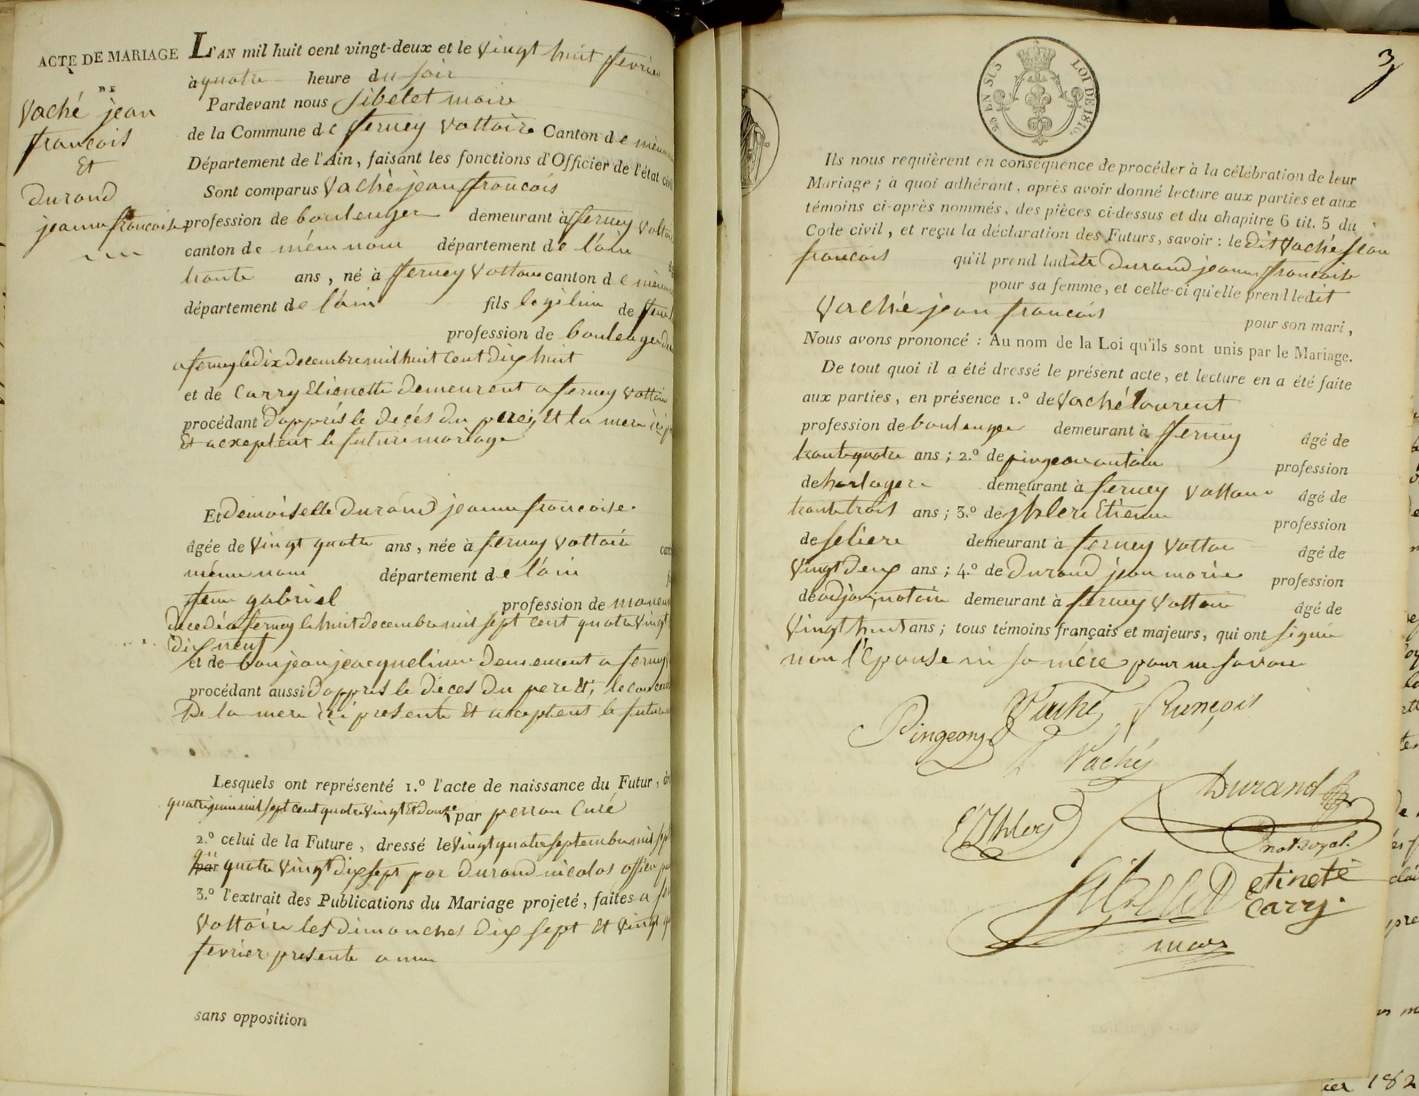 ACTE DE MARIAGE
DE
Vaché jean
francois
Et
durand
jeanne francoise
L'AN mil huit cent vingt-deux et le vingt huit fevrier
à quatre heure du soir
Pardevant nous Sibelet maire
de la Commune de ferney Voltaire Canton de même
Département de l'Ain, faisant les fonctions d'Officier de l'état civil
Sont comparus Vaché jean francois
profession de boulenger demeurant à ferney Voltaire
canton de même nom département de l'ain
trante ans, né à ferney Voltaire canton de même
département de l'ain fils legitime de
profession de boulenger
a ferney le dix decembre mil huit cent dix huit
et de Carry Etienette demeurent a ferney Voltaire
procédant d'apprés le decés du pere, Et la mere ici
Et acxeptent le future mariage
Et demoiselle durand jeanne francoise
âgée de vingt quatre ans, née à ferney Voltaire
même nom département de l'ain
gabriel profession de
decedé a ferney le huit decembre mil sept cent quatre vingt
dix neuf
et de bonjean jacqueline demeurent a ferney
procédant aussi d'appres le deces du pere Et,
De la mere ici presente Et acceptent le future
Lesquels ont représenté 1.º l'acte de naissance du Futur,
quatre juin mil sept cent quatre vingt Et douze par perrau Curé
2.º celui de la Future, dressé le vingt quatre septembre mil sept
par quatre vingt dix sept par durand nicolas officier
3.º l'extrait des Publications du Mariage projeté, faites a
Voltaire les dimanches dix sept Et vingt
fevrier presente annee
sans opposition
3
25 EN SUS LOI DE 1816
Ils nous requièrent en conséquence de procéder à la célébration de leur
Mariage; à quoi adhérant, après avoir donné lecture aux parties et aux
témoins ci-après nommés, des pièces ci-dessus et du chapitre 6 tit. 5 du
Code civil, et reçu la déclaration des Futurs, savoir: le dit Vaché jean
francois qu'il prend ladite durand jeanne francoise
pour sa femme, et celle-ci qu'elle prend ledit
Vaché jean francois pour son mari,
Nous avons prononcé: Au nom de la Loi qu'ils sont unis par le Mariage.
De tout quoi il a été dressé le présent acte, et lecture en a été faite
aux parties, en présence 1.º de Vaché laurent
profession de boulenger demeurant à ferney âgé de
trante quatre ans; 2.º de pingeon antoine profession
de horloger demeurant à ferney Voltaire âgé de
trante trois ans; 3.º de jhler Etienne profession
de seliere demeurant à ferney Voltaire âgé de
vingt deux ans; 4.º de durand jean marie profession
de adjoint notaire demeurant à ferney Voltaire âgé de
vingt huit ans; tous témoins français et majeurs, qui ont signée
non l'epouse ni sa mere pour ne savoir
Vaché François
Pingeon
Vaché
Durand
E Jhler
not Royal
Sibelet
etineté
Carry
maire